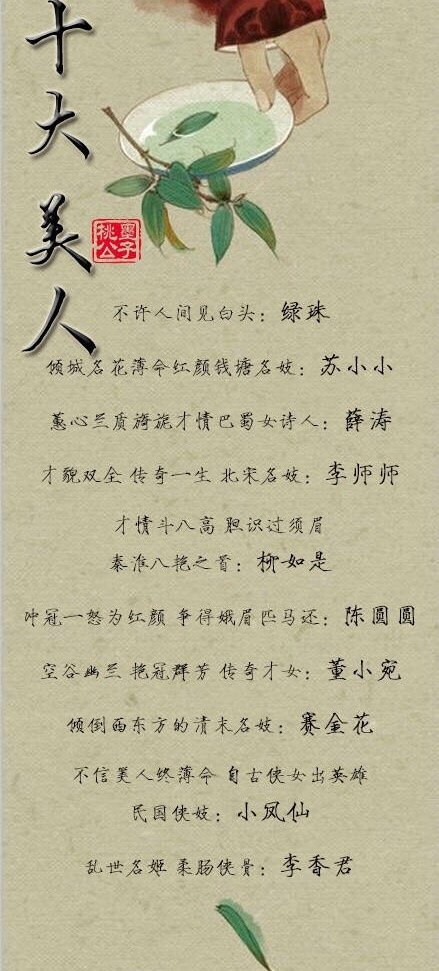 十大美人
桃墨
公子
不许人间见白头：绿珠
倾城名花薄命红颜钱塘名妓：苏小小
蕙心兰质旖旎才情巴蜀女诗人：薛涛
才貌双全 传奇一生 北宋名妓：李师师
才情斗八高 胆识过须眉
秦淮八艳之首：柳如是
冲冠一怒为红颜 争得娥眉匹马还：陈圆圆
空谷幽兰 艳冠群芳 传奇才女：董小宛
倾倒西东方的清末名妓：赛金花
不信美人终薄命 自古侠女出英雄
民国侠妓：小凤仙
乱世名姬 柔肠侠骨：李香君